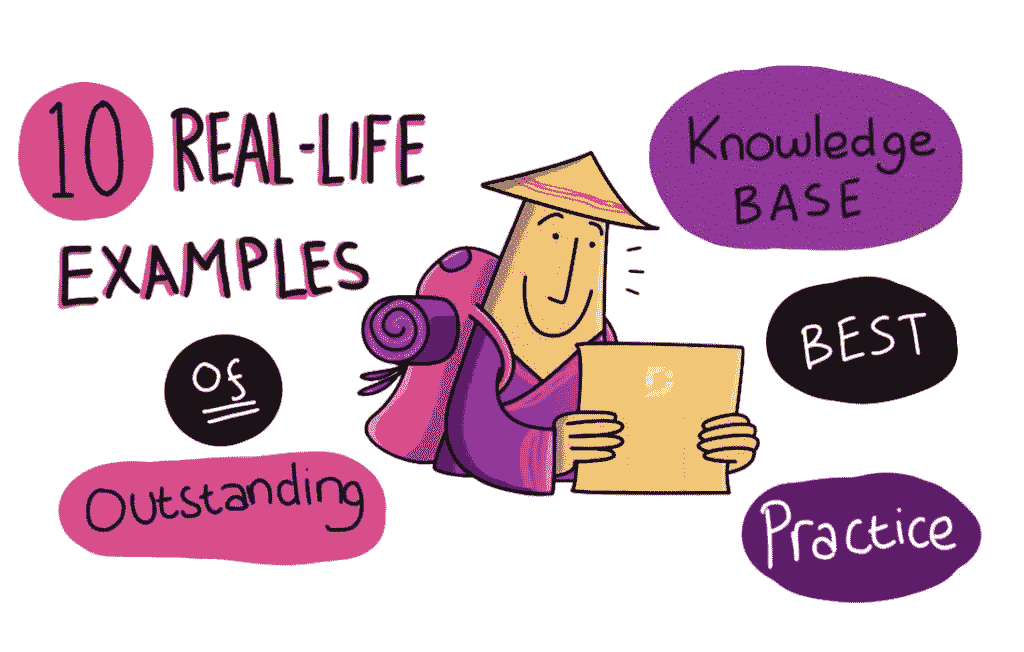 10 REAL-LIFE
EXAMPLES
Of
Outstanding
Knowledge
BASE
BEST
Practice